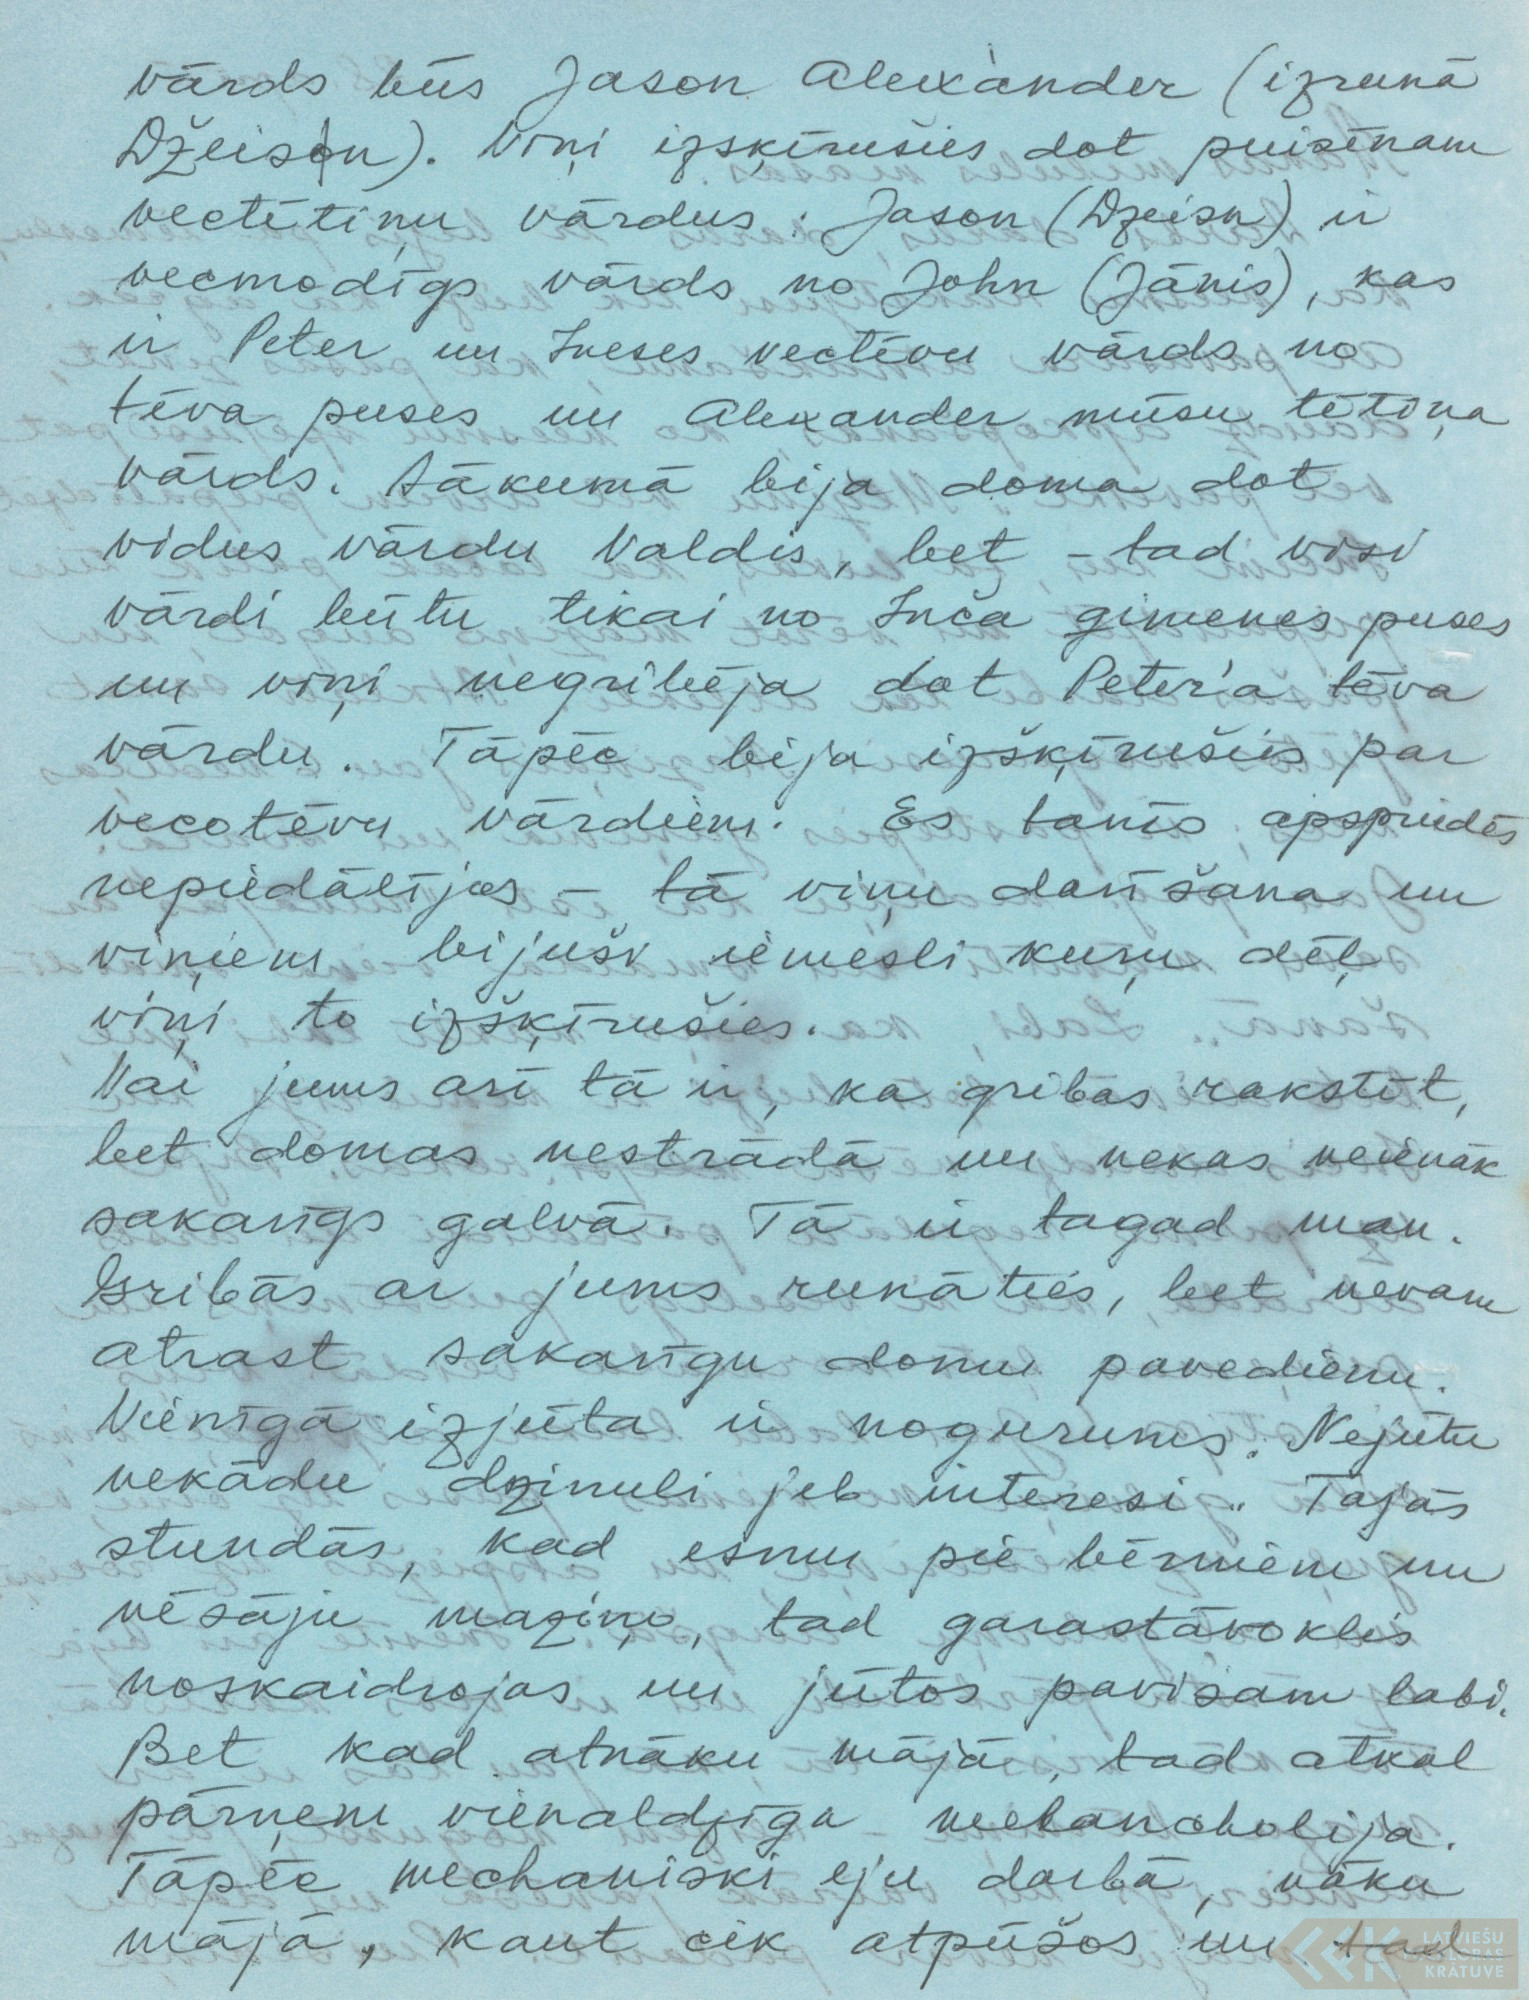 vārds būs Jason Alexander (izrunā
Džeisn). Viņi izšķīrušies dot puisēnam
vectētiņu vārdus: Jason (Dzeisn) ir
vecmodīgs vārds no John (Jānis), kas
ir Peter un Ineses vectēvu vārds no
tēva puses un Alexander mūsu tētiņa
vārds. Sākumā bija doma dot
vidus vārdu Valdis, bet - tad visi
vārdi būtu tikai no Inča gimenes puses
un viņi negribēja dot Peter'a tēva
vārdu. Tāpēc bija izšķīrušies par
vecotēvu vārdiem. Es tanīs apspriedēs
nepiedālījos - tā viņu darīšana un
viņiem bijuši iemesli kuŗu dēļ
viņi to izšķīrušies.
Vai jums arī tā ir, ka gribas rakstīt,
bet domas nestrādā un nekas neienāk
sakarīgs galvā. Tā ir tagad man.
Gribās ar jums runāties, bet nevam
atrast sakarīgu domu pavedienu.
Vienīgā izjūta ir nogurums. Nejūtu
nekādu dzinuli jeb interesi.. Tajās
stundās, kad esmu pie bērniem un
nēsāju maziņo, tad garastāvoklis
noskaidrojas un jūtos pavisam labi.
Bet kad atnāku mājā, tad atkal
pārņem vienaldzīga melancholija.
Tāpēc mechaniski eju darbā, nāku
mājā, kaut cik atpūšos un tad
LATVIEŠU
KULTŪRAS
KRĀTUVE